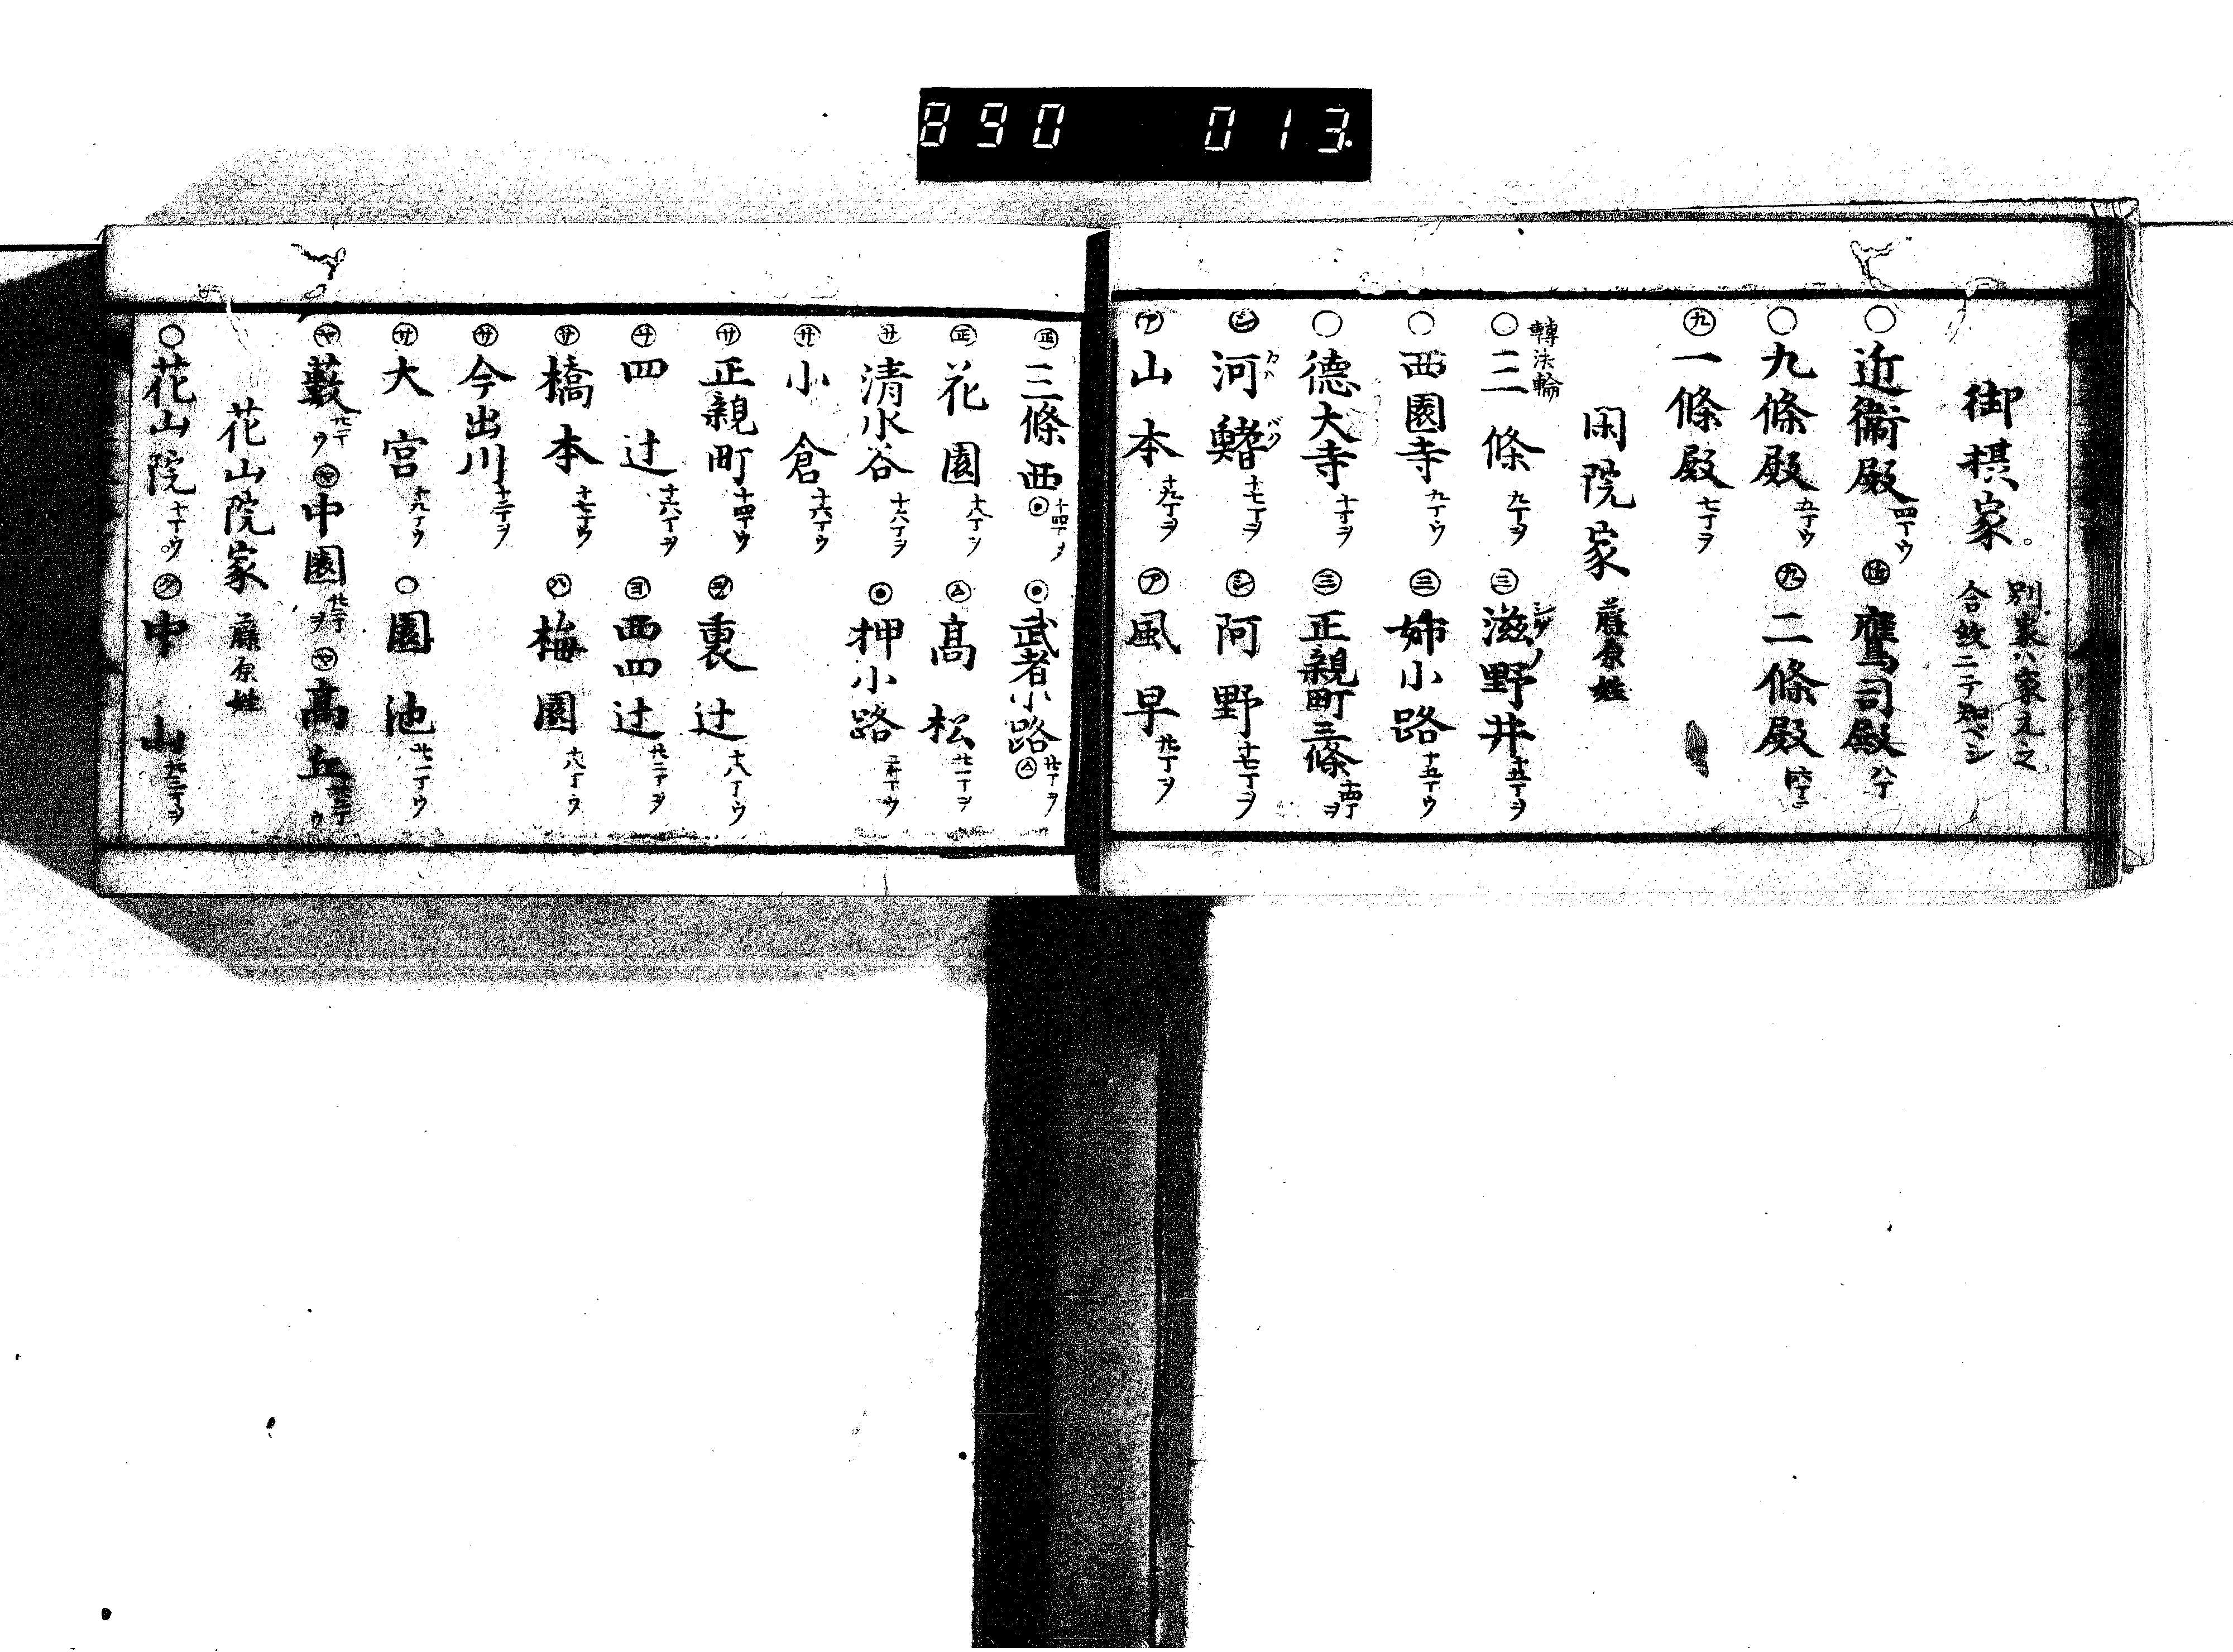 890 013.
御摂家
別家ハ家元之
合紋ニテ知ベシ
○近衞殿 四丁ウ
鷹司殿 八丁
○九條殿 五丁ウ
㊈二條殿
㊈一條殿 七丁ヲ
閑院家 藤原姓
轉法輪
○三條 九丁ヲ
㊂滋野井 十五丁ヲ
○西園寺 九丁ウ
㊂姉小路 十五丁ウ
○德大寺 十丁ヲ
㊂正親町三條 十四丁ヲ
㋛河鰭 カハ バタ 十七丁ヲ
㋛阿野 十七丁ヲ
㋐山本 十九丁ヲ
㋐風早 廿丁ヲ
三條西◉ 十四丁ヲ
◉武者小路㋰ 廿丁ヲ
花園 十八丁
㋰高松 廿一丁ヲ
清水谷 十六丁ヲ
◉押小路 ウ
㋚小倉 十六丁ウ
㋚正親町 十四丁ウ
裏辻 十八丁ウ
㋚四辻 十六丁ヲ
㋵西四辻 廿二丁ヲ
㋚橋本 十七丁ウ
㋩梅園 十八丁ウ
㋚今出川 ヲ
㋚大宮 十九丁ウ
○園池 廿一丁ウ
㋳藪 ウ
㋳中園 ヲ
㋳高丘 ウ
花山院家 藤原姓
○花山院 十丁ウ
中山 廿三丁ヲ